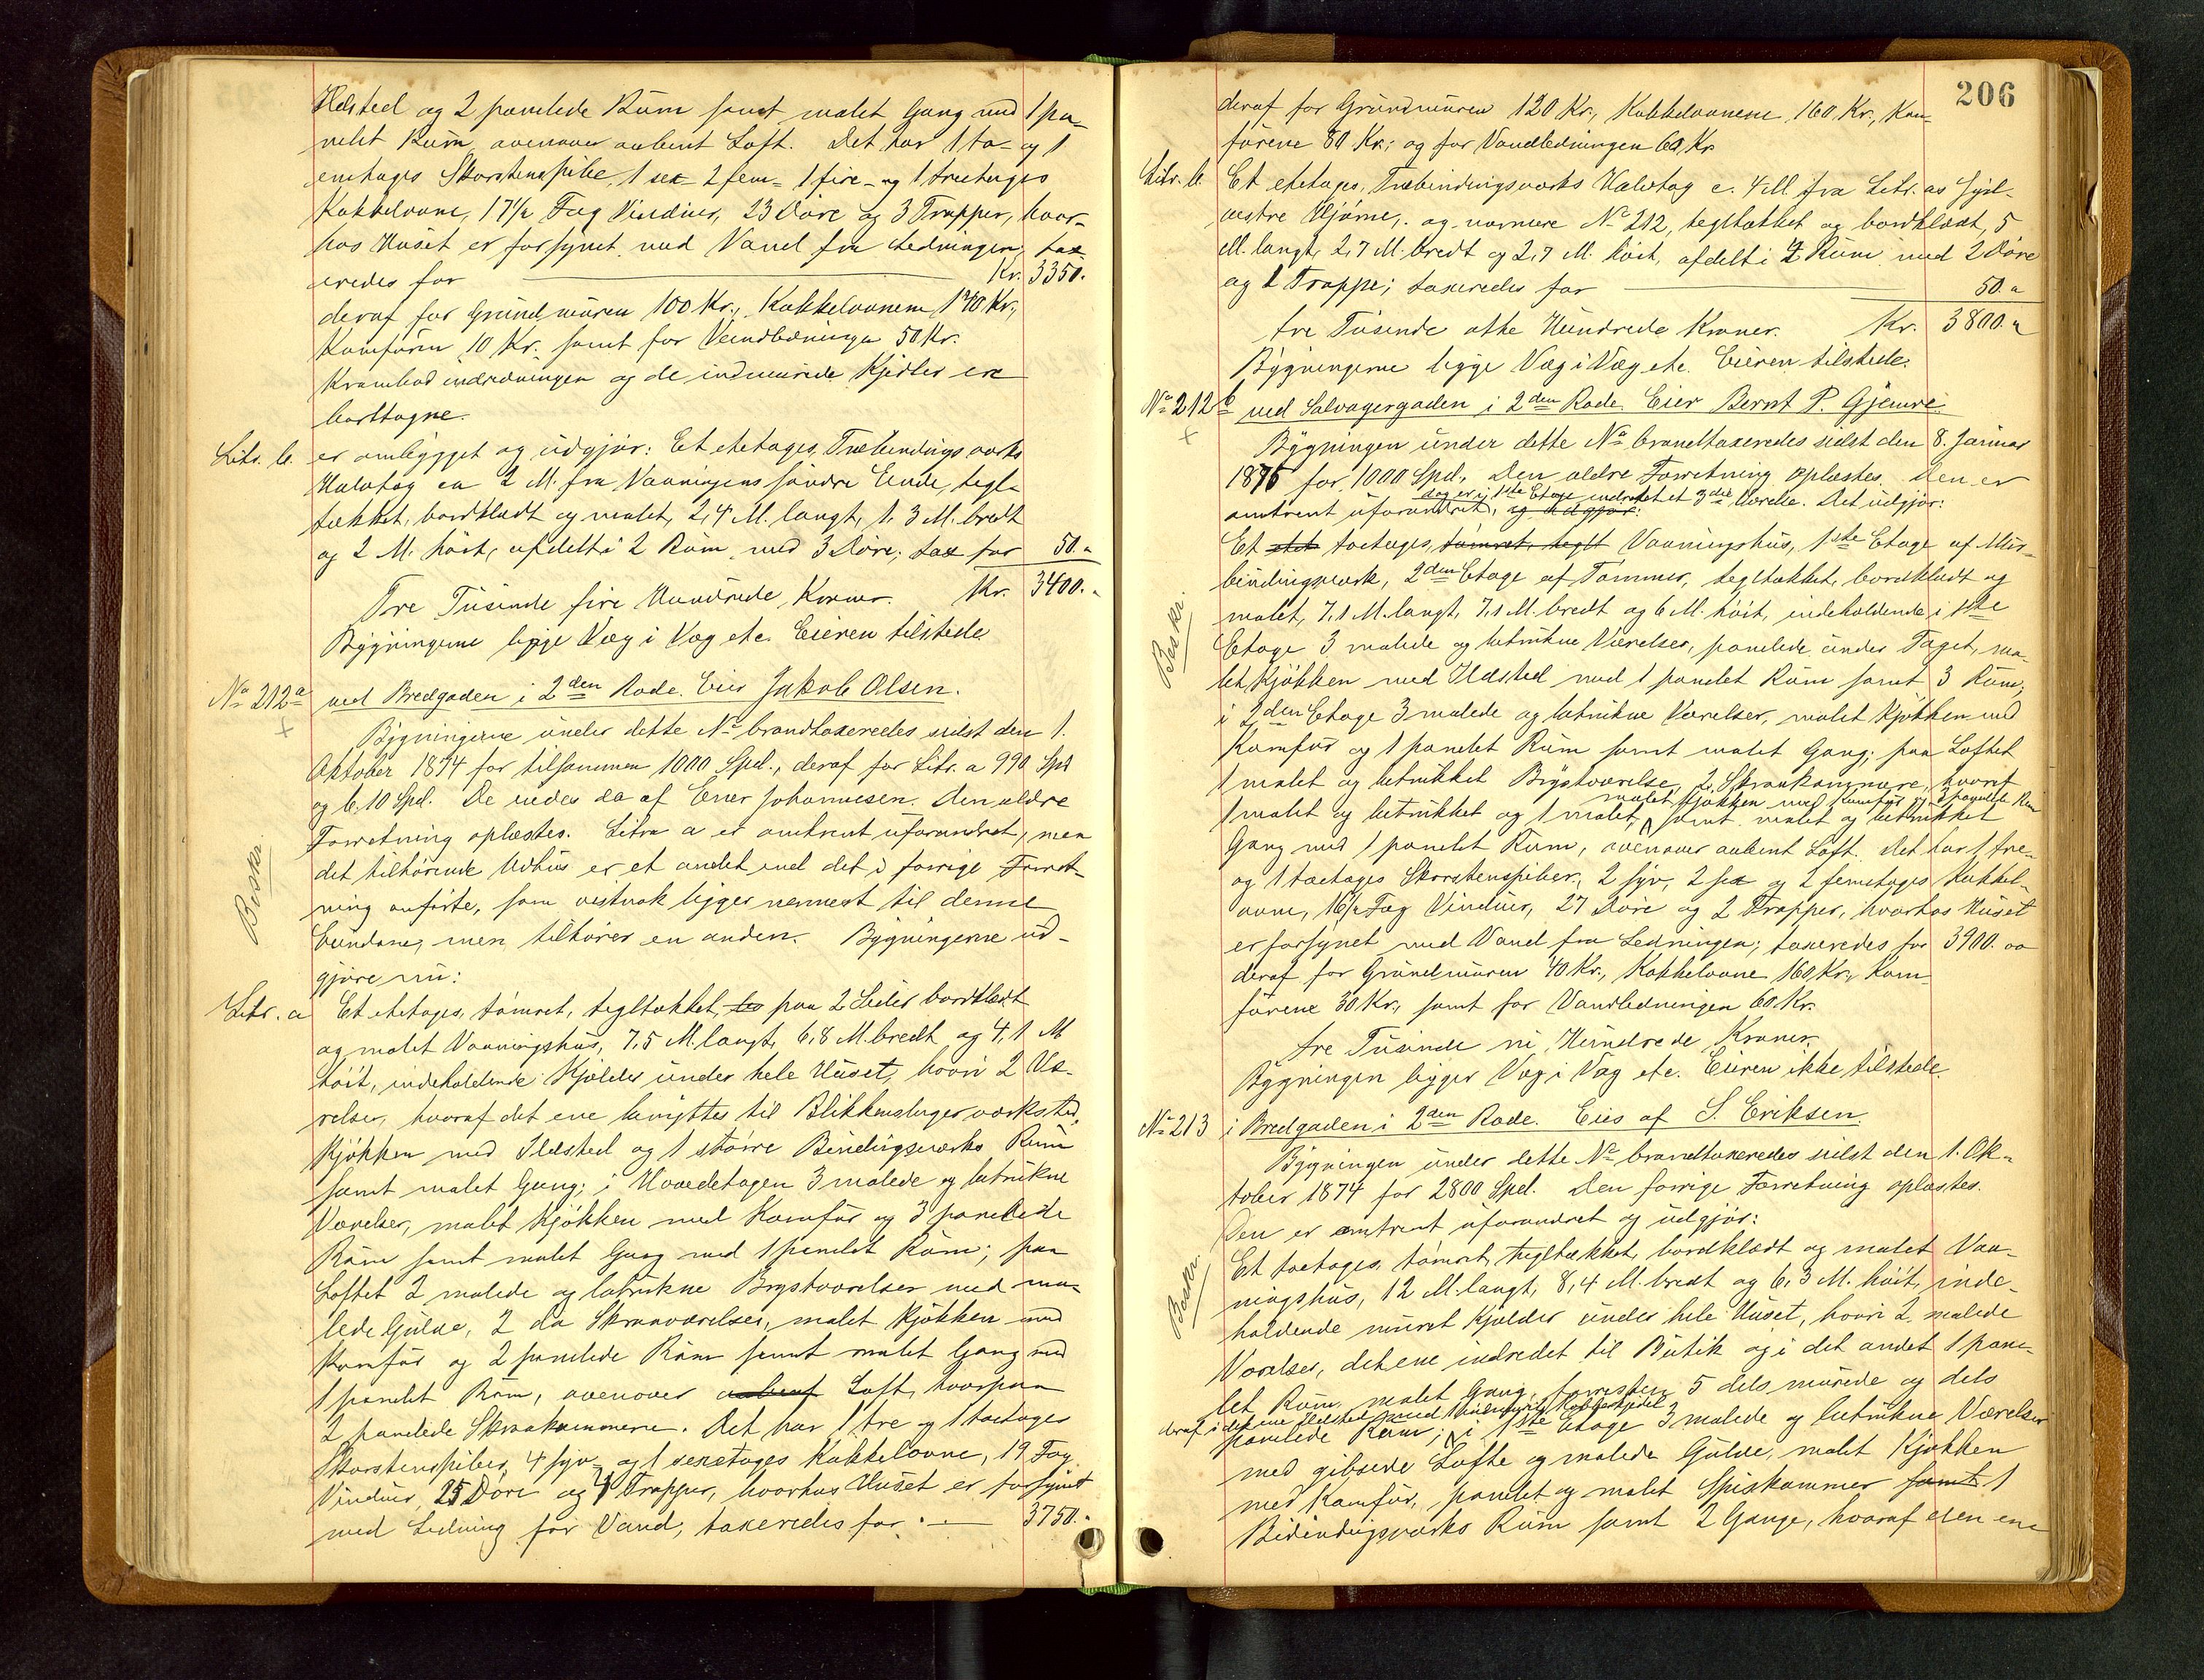 Ildsted og 2 panelede Rum samt malet Gang med 1 pa-
nelet Rum, ovenover aabent Loft. Det har 1 to- og 1
enetages Skorstenspibe, 1 sex- 2 fem- 1 fire- og 1 treetages
Kakkelovne, 17½ Fag Vinduer, 23 Døre og 3 Trapper, hvor-
hos Huset er forsynet med Vand fra Ledningen, tax-
eredes for Kr. 3350.
deraf for Grundmuren 100 Kr., Kakkelovnene 140 Kr.,
Komfuren 10 Kr. samt for Vandledningen 50 Kr.
Krambodindredningen og de indmurede Kjedler ere
borttagne.
Litr. b. er ombygget og udgjør: Et etetages, Træbindingsværks
Halvtag ca 2 M. fra Vaaningens søndre Ende, tegl-
tækket, bordklædt og malet, 2,4 M. langt, 1,3 M. bredt
og 2 M. høit, afdelt i 2 Rum med 3 Døre; tax for 50.-
Tre Tusinde fire Hundrede Kroner. Kr. 3400.-
Bygningerne ligge Væg i Væg etc. Eieren tilstede
No 212a ved Bredgaden i 2den Rode. Eier Jakob Olsen.
Bygningerne under dette No brandtaxeredes sidst den 1.
Oktober 1874 for tilsammen 1000 Spd., deraf for Litr. a 990 Spd
og b. 10 Spd. De eiedes da af Johannesen. Den ældre
Forretning oplæstes. Litra a er omtrent uforandret, men
Beskr.
det tilhørende Udhus er et andet end det i forrige Forret-
ning anførte, som vistnok ligger nærmest til denne
Eiendom, men tilhører en anden. Bygningerne ud-
gjøre nu:
Litr. a Et etetages, tømret, tegltækket, paa 2 Sider bordklædt
og malet Vaaningshus, 7,5 M. langt, 6,8 M. bredt og 4,1 M
høit, indeholdende Kjælder under hele Huset, hvori 2 Væ-
relser, hvoraf det ene benyttes til Blikkenslagerværksted,
Kjøkken med Ildsted og 1 større Bindingsværks Rum
samt malet Gang; i Hovedetagen 3 malede og betrukne
Værelser, malet Kjøkken med Komfur og 3 panelede
Rum samt malet Gang med 1 panelet Rum; paa
Loftet 2 malede og betrukne Brystværelser med ma-
lede Gulve, 2 do Skraaværelser, malet Kjøkken med
Komfur og 2 panelede Rum samt malet Gang med
1 panelet Rum, ovenover aabent Loft, hvorpaa
2 panelede Skraakammere. Det har 1 tre og 1 toetages
Skorstenspiber, 4 syv- og 1 sexetages Kakkelovne, 19 Fag
Vinduer, 25 Døre og Trapper, hvorhos Huset er forsynet
med Ledning for Vand, taxeredes for 3750.-
206
deraf for Grundmuren 120 Kr., Kakkelovnene 160 Kr., Kom-
furene 80 Kr. og for Vandledningen 60 Kr
Litr. b. Et etetages, Træbindingsværks Halvtag c. 4 M. fra Litr. as syd-
vestre Hjørne, og nærmere No 212, tegltækket og bordklædt, 5
M. langt, 2,7 M. bredt og 2,7 M. høit, afdelt i 2 Rum med 2 Døre
og 1 Trappe; taxeredes for 50.-
tre Tusinde otte Hundrede Kroner. Kr. 3800.-
Bygningerne ligge Væg i Væg etc. Eieren tilstede.
No 212b ved Salvagergaden i 2den Rode. Eier Bernt P. Gjemre.
Bygningen under dette No brandtaxeredes sidst den 8. Januar
1876 for 1000 Spd. Den ældre Forretning oplæstes. Den er
dog er i 1ste Etage indredet et 3die Værelse. Det udgjør:
omtrent uforandret, og udgjør:
Et toetages, tømret, teglt Vaaningshus, 1ste Etage af Mur-
bindingsværk, 2den Etage af Tømmer, tegltækket, bordklædt og
Beskr.
malet, 7,1 M. langt, 7,1 M. bredt og 6 M. høit, indeholdende i 1ste
Etage 3 malede og betrukne Værelser, panelede under Taget, ma-
let Kjøkken med Ildsted med 1 panelet Rum samt 3 Rum;
i 2den Etage 3 malede og betrukne Værelser, malet Kjøkken med
Komfur og 1 panelet Rum samt malet Gang; paa Loftet
1 malet og betrukket Brystværelse, 2 Skraakammere, hvoraf
malet Kjøkken med Komfur og 3 panelede Rum
1 malet og betrukket og 1 malet, samt malet og betrukket
Gang med 1 panelet Rum, ovenover aabent Loft. Det har 1 tre-
og 1 toetages Skorstenspiber, 2 syv, 2 sex og 2 femetages Kakkel-
ovne, 16½ Fag Vinduer, 27 Døre og 2 Trapper, hvorhos Huset
er forsynet med Vand fra Ledningen; taxeredes for 3900.00
deraf for Grundmuren 40 Kr., Kakkelovne 160 Kr., Kom-
furene 30 Kr., samt for Vandledningen 60 Kr.
tre Tusinde ni Hundrede Kroner.
Bygningen ligger Væg i Væg etc. Eieren ikke tilstede.
No 213 i Bredgaden i 2den Rode. Eies af S. Eriksen.
Bygningen under dette No brandtaxeredes sidst den 1. Ok-
tober 1874 for 2800 Spd. Den forrige Forretning oplæstes.
Den er omtrent uforandret og udgjør:
Beskr.
Et toetages, tømret, tegltækket, bordklædt og malet Vaa-
ningshus, 12 M. langt, 8,4 M. bredt og 6,3 M. høit, inde-
holdende muret Kjælder under hele Huset, hvori 2 malede
Værelser, det ene indredet til Butik og i det andet 1 pane-
let Rum, malet Gang, forresten 5 dels murede og dels
deraf i det ene Ildsted med 1 indmuret Kobberkjedel
panelede Rum; i 1ste Etage 3 malede og betrukne Værelser
med gibsede Lofte og malede Gulve, malet Kjøkken
med Komfur, panelet og malet Spiskammer samt 1
Bindingsværks Rum samt 2 Gange, hvoraf den ene